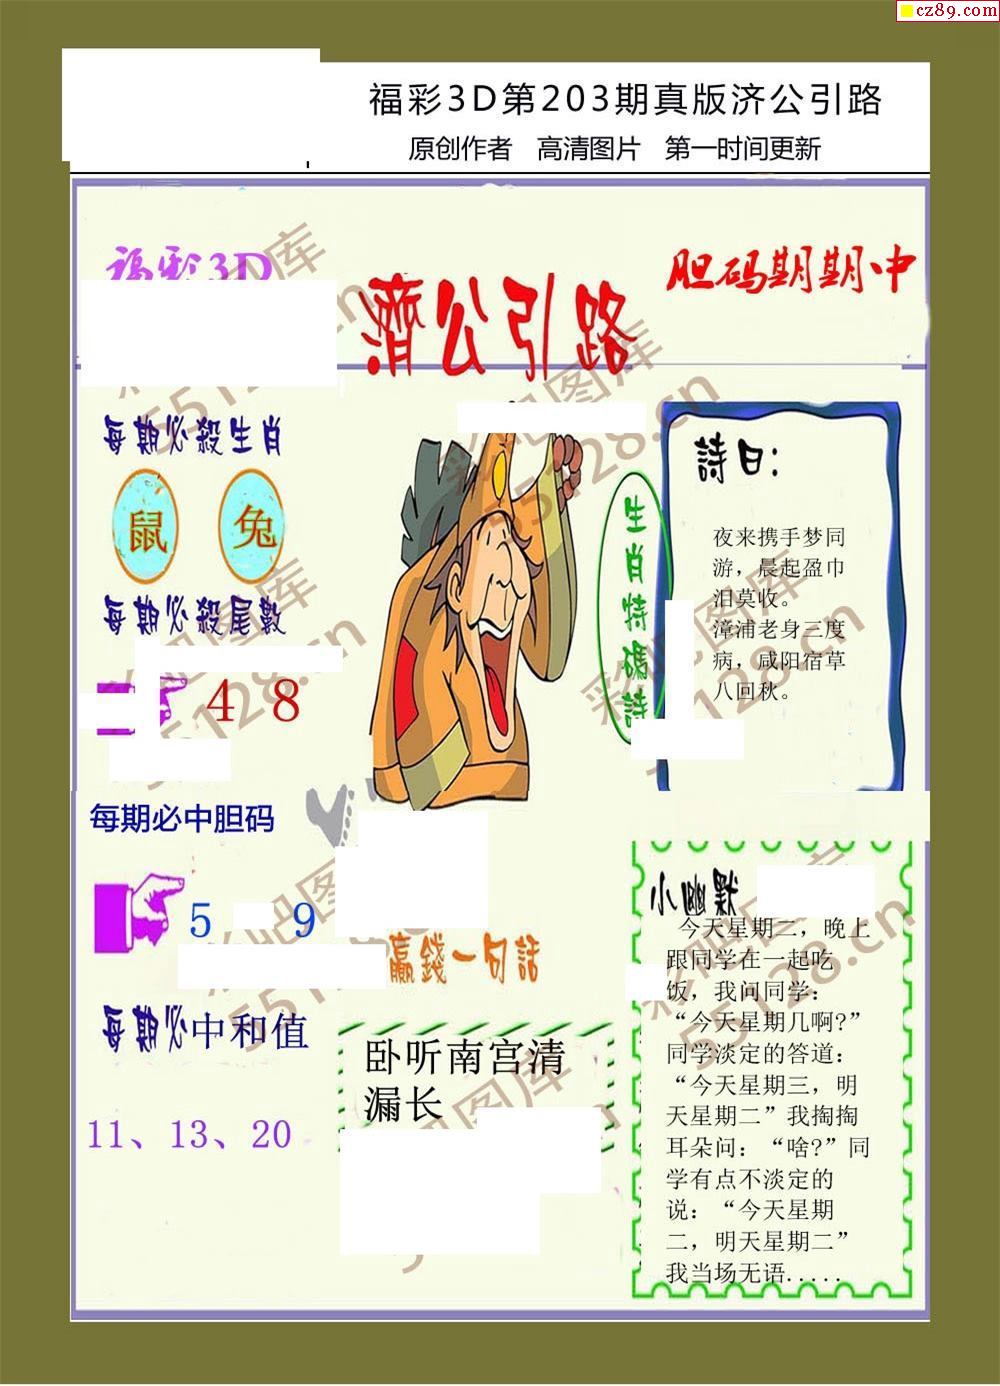 cz89.com
福彩3D第203期真版济公引路
原创作者 高清图片 第一时间更新
福彩3D
濟公引路
胆码期期中
每期必殺生肖
鼠 兔
每期必殺尾數
4 8
每期必中胆码
5 9
每期必中和值
11、13、20
生肖特碼詩
詩曰：
夜来携手梦同
游，晨起盈巾
泪莫收。
漳浦老身三度
病，咸阳宿草
八回秋。
赢錢一句話
卧听南宫清
漏长
小幽默
今天星期二，晚上
跟同学在一起吃
饭，我问同学：
“今天星期几啊?”
同学淡定的答道：
“今天星期三，明
天星期二”我掏掏
耳朵问：“啥?”同
学有点不淡定的
说：“今天星期
二，明天星期二”
我当场无语.....
彩吧图库
55128.cn